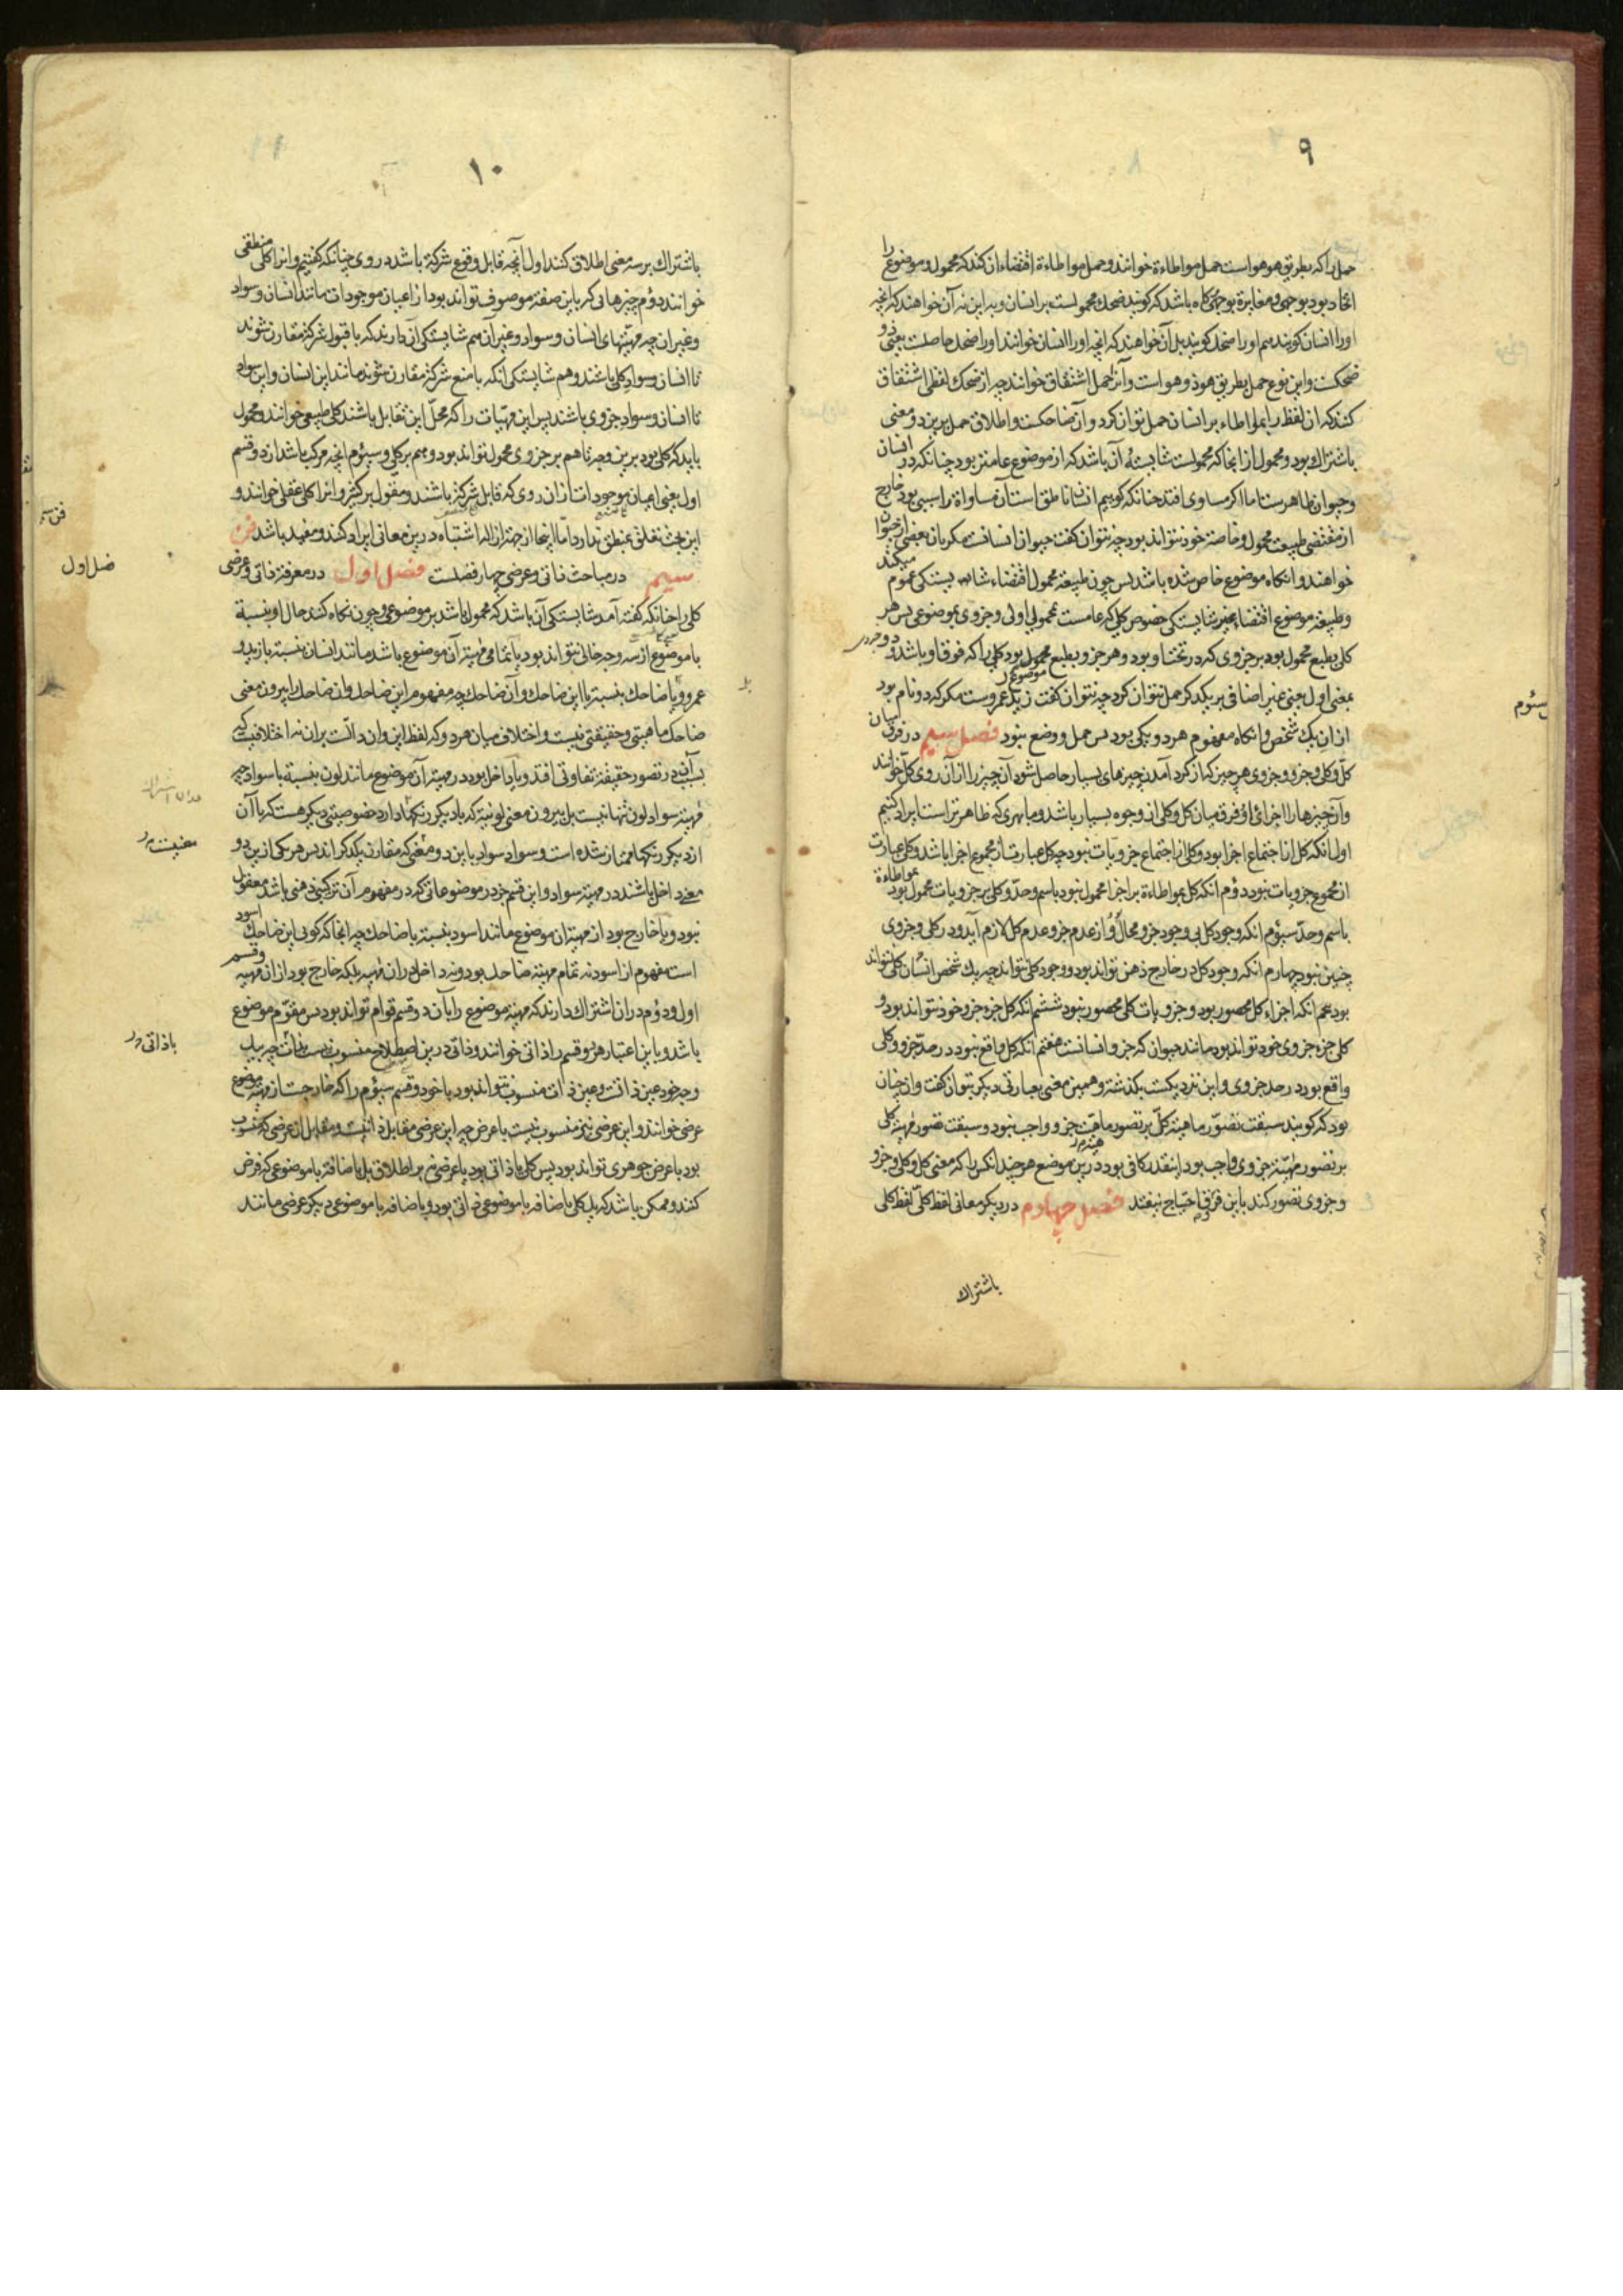 ۹
حمل را که بطریق هو هو است حمل مواطاءة خوانند و حمل مواطاءة اقتضاء ان کند که محمول و موضوع را
اتحاد بود بوجهی و مغایرة بوجهی که باشد که کویند ضحک محمولست بر انسان و به این نه آن خواهند که انچه
او را انسان کویند هم او را ضحک کویند بل آن خواهند که انچه او را انسان خوانند او را ضحک حاصلست یعنی ذو
ضحکست و این نوع حمل بطریق هو ذو هو است و آنرا حمل اشتقاق خوانند چه از ضحک لفظی اشتقاق
کنند که ان لفظ را بمواطاءه بر انسان حمل توان کرد و آن ضاحکست و اطلاق حمل برین دو معنی
باشتراک بود و محمول از انجا که محمولست شایسته آن باشد که از موضوع عامتر بود چنانکه در انسان
و حیوان ظاهرست اما اکر مساوی افتد چنانکه کوییم انسان ناطق است آن مساواة را سببی بود خارج
از مقتضی طبیعت محمول و خاصتر خود نتواند بود چه نتوان کفت حیوان انسانست مکر بان بعضی از حیوان
خواهند و انکاه موضوع خاص شده باشد پس چون طبیعة محمول اقتضاء شایستکی عموم میکند
و طبیعة موضوع اقتضاء شایستکی خصوص کلی که عامست بمحمولی اولی و جزوی بموضوعی پس هر
کلی بطبع محمول بود بر جزوی که در تحت او بود و هر جزو بطبع موضوع بود کلی را که فوق او باشد و دو جزوی
بمعنی اول یعنی غیر اضافی بر یکدکر حمل نتوان کرد چه نتوان کفت زید عمروست مکر که دو نام بود
از ان یک شخص و انکاه مفهوم هر دو یکی بود پس حمل و وضع نبود فصل سیم در فرق میان
کل و کلی و جزو و جزوی هر چیز که از کرد آمدن چیزهای بسیار حاصل شود آن چیز را از آن روی کل خوانند
و آن چیزها را اجزای او و فرق میان کل و کلی از وجوه بسیار باشد و ما بهری که ظاهرتر است ایراد کنیم
اول انکه کل از اجتماع اجزا بود و کلی از اجتماع جزویات نبود چه کل عبارت از مجموع اجزا باشد و کلی عبارت
از مجموع جزویات نبود دوم انکه کل بمواطاءة بر اجزا محمول نبود باسم و حد و کلی بر جزویات محمول بود
باسم و حد سیوم انکه وجود کل بی وجود جزو محال و از عدم جزو عدم کل لازم آید و در کلی و جزوی
چنین نبود چهارم انکه وجود کل در خارج ذهن تواند بود و وجود کلی نتواند چه یک شخص انسان کلی نتواند
بود پنجم انکه اجزاء کل محصور بود و جزویات کلی محصور نبود ششم انکه کل جزو جزو خود نتواند بود و
کلی جزو جزوی خود تواند بود مانند حیوان که جزو انسانست هفتم انکه کل واقع نبود در حد جزو و کلی
واقع بود در حد جزوی و این نزدیکست بکذشته و همین معنی بعبارتی دیکر بتوان کفت و ان چنان
بود که کویند سبقت تصور ماهیة کل بر تصور ماهیت جزو واجب نبود و سبقت تصور مهیة کلی
بر تصور مهیة جزوی واجب بود اینقدر کافی بود درین موضع هر چند انکس را که معنی کل و کلی و جزو
و جزوی تصور کند باین فرق احتیاج نیفتد فصل چهارم در دیکر معانی لفظ کلی لفظ کلی
باشتراک
سئوم
۱۰
باشتراک بر سه معنی اطلاق کنند اول آنچه قابل وقوع شرکة باشد در وی چنانکه کفتیم و انرا کلی منطقی
خوانند دوم چیزهائی که باین صفة موصوف تواند بود از اعیان موجودات مانند انسان و سواد
و غیر ان چه مهیتهای انسان و سواد و غیر آن هم شایستکی آن دارند که با قبول شرکة مقارن شوند
تا انسان و سواد کلی باشند و هم شایستکی انکه با منع شرکة مقارن شوند مانند این انسان و این سواد
تا انسان و سواد جزوی باشند پس این مهیات را که محل این تقابل باشند کلی طبیعی خوانند و محمول
باید که کلی بود برین وجه تا هم بر جزوی محمول تواند بود و هم بر کلی و سیوم انچه مرکب باشد از دو قسم
اول یعنی اعیان موجودات از ان روی که قابل شرکة باشند و مقول بر کثیر و انرا کلی عقلی خوانند و
این بحث تعلق بمنطق ندارد اما اینجا از جهة ازاله اشتباه درین معانی ایراد کنند و مفید باشد فن
سیم در مباحث ذاتی و عرضی چهار فصلست فصل اول در معرفة ذاتی و عرضی
کلی را چنانکه کفته آمد شایستکی آن باشد که محمول باشد بر موضوعی و چون نکاه کنند حال او بنسبة
با موضوع از سه وجه خالی نتواند بود یا تمامی مهیة آن موضوع باشد مانند انسان بنسبة با زید و
عمرو و یا ضاحک بنسبة با این ضاحک و آن ضاحک چه مفهوم این ضاحک و ان ضاحک را بیرون معنی
ضاحک ماهیتی و حقیقتی نیست و اختلاف میان هر دو که لفظ این و ان دالست بران نه اختلافیست که
بسبب آن در تصور حقیقة تفاوتی افتد و یا داخل بود در مهیة آن موضوع مانند لون بنسبة با سواد چه
مهیة سواد لون تنها نیست بل بیرون معنی لونیة که با دیکر رنکها دارد خصوصیتی دیکر هست که با آن
از دیکر رنکها ممتاز شده است و سواد سواد باین دو معنی که مقارن یکدکراند پس هر یکی از این دو
معنی داخل باشند در مهیة سواد و این قسم جز در موضوعاتی که در مفهوم آن ترکیبی ذهنی باشد معقول
نبود و یا خارج بود از مهیة ان موضوع مانند اسود بنسبة با ضاحک چه انجا که کوئی این ضاحک اسود
است مفهوم از اسود نه تمام مهیة ضاحک بود و نه داخل در ان مهیة بلکه خارج بود از ان مهیة و قسم
اول و دوم در ان اشتراک دارند که مهیة موضوع را بآن دو قسم قوام تواند بود پس مقوم موضوع
باشد و باین اعتبار هر دو قسم را ذاتی خوانند و ذاتی درین اصطلاح منسوب نیست بذات چه
عرضی خوانند و این عرضی نیز منسوب نیست با عرض چه این عرضی مقابل ذاتیست و مقابل ان عرضی که منسوب
بود با عرض جوهری تواند بود پس کلی یا ذاتی بود یا عرضی نه بر اطلاق بل باضافة با موضوعی که فرض
کنند و ممکن باشد که یک کلی باضافه با موضوعی ذاتی بود و باضافه با موضوعی دیکر عرضی مانند
فصل اول